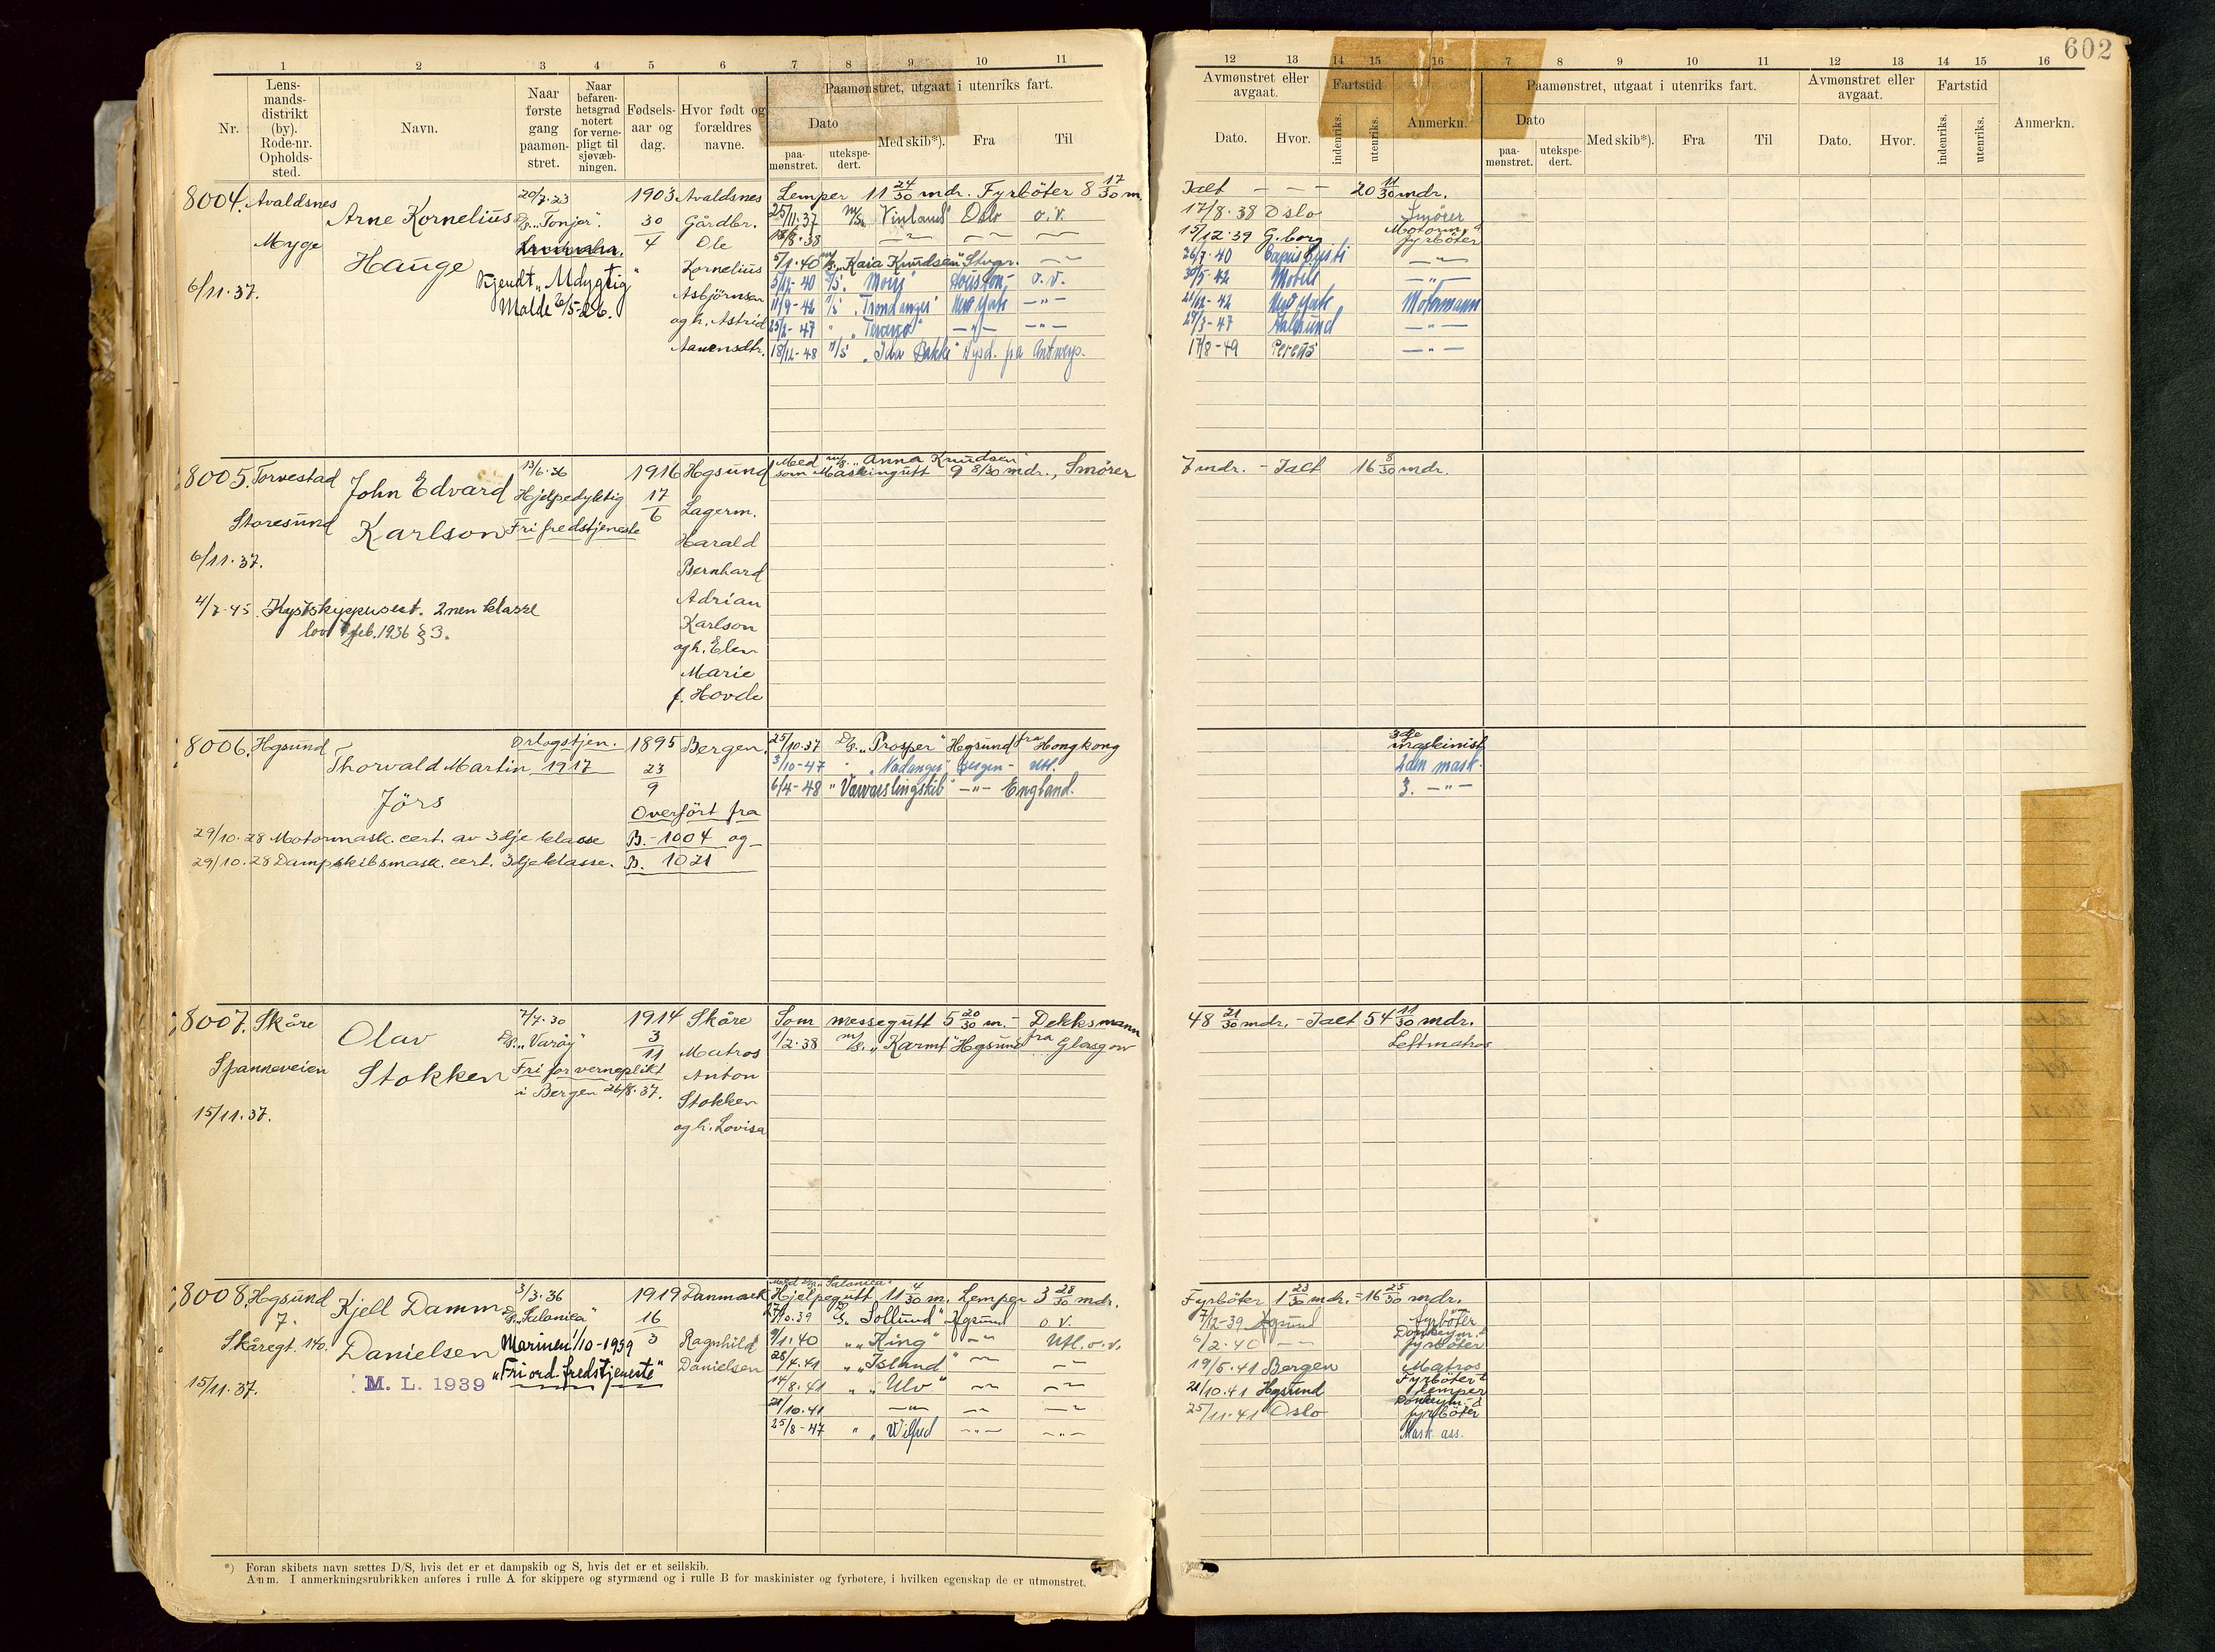 602
1 2 3 4 5 6 7 8 9 10 11
12 13 14 15 16 7 8 9 10 11 12 13 14 15 16
Nr.
Lens-
mands-
distrikt
(by).
Rode-nr.
Opholds-
sted.
Navn.
Naar
første
gang
paamøn-
stret.
Naar
befaren-
hetsgrad
notert
for verne-
pligt til
sjøvæb-
ningen.
Fødsels-
aar og
dag.
Hvor født og
forældres
navne.
Paamønstret, utgaat i utenriks fart.
Dato
paa-
mønstret.
utekspe-
dert.
Med skib*).
Fra
Til
Avmønstret eller
avgaat.
Dato.
Hvor.
Fartstid
indenriks.
utenriks.
Anmerkn.
Paamønstret, utgaat i utenriks fart.
Dato
paa-
mønstret.
utekspe-
dert.
Med skib*).
Fra
Til
Avmønstret eller
avgaat.
Dato.
Hvor.
Fartstid
indenriks.
utenriks.
Anmerkn.
8004. Avaldsnes
Myge
6/11.37.
Arne Kornelius
Hauge
20/7.23
D/S. "Tonjer".
Kjendt "Udygtig"
Malde 26/5-26.
1903
30/4
Avaldsnes
Gårdbr.
Ole
Kornelius
Asbjörnsen
og h. Astrid
Lemper 11 24/30 mdr. Fyrböter 8 17/30 m.
Ialt — — — 20 11/30 mdr.
25/11.37 m/s. "Vinland" Oslo o.v.
17/8.38 Oslo Smörer
18/8.38 —"— —"— —"—
15/12.39 G.borg Motorm. & fyrböter
5/1.40 m/s. "Kaia Knudsen" Stvgr. —"—
26/7-40 —"—
5/12-40 Houston, o.v.
30/5-42 Mobile —"—
11/9-42 "Trondanger" New York —"—
21/12-42 New York Motormann
25/2-47 " —"— —"—
29/3-47 Aalesund —"—
18/12-48 M/S "Ida Bakke" Nysd. på Antwerp.
17/8-49 —"—
8005. Torvestad
Storesund
6/11.37.
John Edvard
Karlson
13/6.36
Hjelpedyktig
Fri fredstjeneste
1916
17/6
Hgsund
Lagerm.
Harald
Bernhard
Adrian
Karlson
og h. Elen
Marie
f. Hovde
Med m/s. "Anna Knudsen"
som Maskingutt 9 8/30 mdr., Smörer
7 mdr. - Ialt 16 8/30 mdr.
4/7-45. Kystskippersert. 2nen klasse
lov 7 feb. 1936 § 3.
8006. Hgsund
Thorvald Martin
Jörs
Orlogstjen.
1917
1895
23/9
Bergen.
Overfört fra
B.-1004 og
B. 1021
29/10.28 Motormask. cert. av 3dje klasse
29/10.28 Dampskibsmask. cert. 3dje klasse.
25/10.37 D/S. "Prosper" Hgsund fra Hongkong
3dje maskinist
3/10-47 " Bergen - Utl.
2den mask.
6/4-48 " "Varvarslingskib" —"— England.
3. —"—
8007. Skåre
Spanneveien
15/11.37.
Olav
Stokken
7/7.30
D/S. "Varöy"
Fri for verneplikt
i Bergen 26/8.37.
1914
3/11
Skåre
Matros
Anton
Stokken
og h. Lovisa
Som messegutt 5 20/30 m. - Dekksmann
48 21/30 mdr. - Ialt 54 11/30 mdr.
1/2.38 m/s. "Karmt" Hgsund fra Glasgow
Lettmatros
8008. Hgsund
7.
Skåregt. 140.
15/11.37.
Kjell Damm
Danielsen
M. L. 1939
3/3.36
D/S. "Salonica"
Marinen 1/10-1939
"Fri ord. fredstjeneste"
1919
16/3
Danmark
Ragnhild
Danielsen
Med D/S. "Salonica"
Hjelpegutt 11 4/30 m. Lemper 3 28/30 mdr.
Fyrböter 1 23/30 mdr. = 16 25/30 mdr.
17/10.39 D/S. "Sollund" Hgsund o.v.
7/12-39 Hgsund fyrböter
9/1.40 " "King" —"— Utl. o.v.
6/2.40 —"— Donkeym. & fyrböter
28/4.41 " "Island" —"— —"—
19/5.41 Bergen Matros
14/8.41 " "Ulv" —"— —"—
21/10.41 Hgsund Fyrböter & lemper
21/10.41 —"— —"— —"—
25/11.41 Oslo Donkeym. & fyrböter
25/8-47 " "Wilfred —"— —"—
Mask. ass.
*) Foran skibets navn sættes D/S, hvis det er et dampskib og S, hvis det er et seilskib.
Anm. I anmerkningsrubrikken anføres i rulle A for skippere og styrmænd og i rulle B for maskinister og fyrbøtere, i hvilken egenskap de er utmønstret.